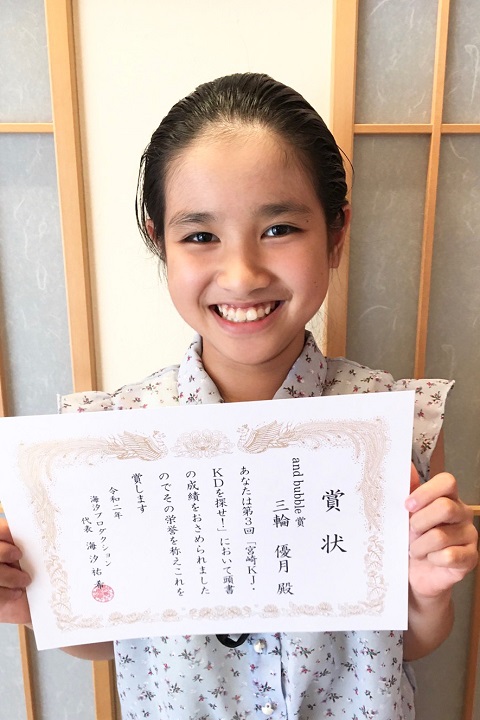 賞状
and bubble賞
三輪 優月 殿
あなたは第3回「宮崎KJ・
KDを探せ!」において頭書
の成績をおさめられました
のでその栄誉を称えこれを
賞します
令和二年
海汐プロダクション
代表 海汐祐